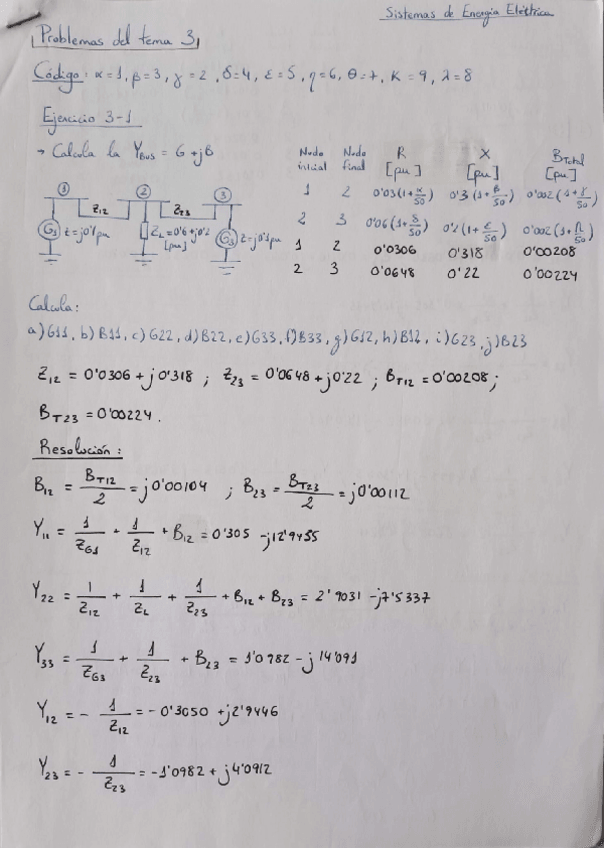 Sistemas de Energía Eléctrica
Problemas del tema 3
Código: α=1, β=3, γ=2, δ=4, ε=5, η=6, θ=7, K=9, λ=8
Ejercicio 3-1
→ Calcula la Y_BUS = G + jB
Nudo inicial Nudo final R [pu] X [pu] B_Total [pu]
1 2 0'03(1+α/50) 0'3(1+β/50) 0'002(1+γ/50)
2 3 0'06(1+δ/50) 0'2(1+ε/50) 0'002(1+η/50)
1 2 0'0306 0'318 0'00208
2 3 0'0648 0'22 0'00224
① ② ③
Z12 Z23
G1 Z=j0'1pu Z_L=0'6+j0'2 [pu] G3 Z=j0'1pu
Calcula:
a) G11, b) B11, c) G22, d) B22, e) G33, f) B33, g) G12, h) B12, i) G23, j) B23
Z12 = 0'0306 + j0'318 ; Z23 = 0'0648 + j0'22 ; B_T12 = 0'00208;
B_T23 = 0'00224.
Resolución:
B12 = B_T12/2 = j0'00104 ; B23 = B_T23/2 = j0'00112
Y11 = 1/Z_G1 + 1/Z12 + B12 = 0'305 - j12'9455
Y22 = 1/Z12 + 1/Z_L + 1/Z23 + B12 + B23 = 2'9031 - j7'5337
Y33 = 1/Z_G3 + 1/Z23 + B23 = 1'0982 - j14'091
Y12 = - 1/Z12 = - 0'3050 + j2'9446
Y23 = - 1/Z23 = - 1'0982 + j4'0912